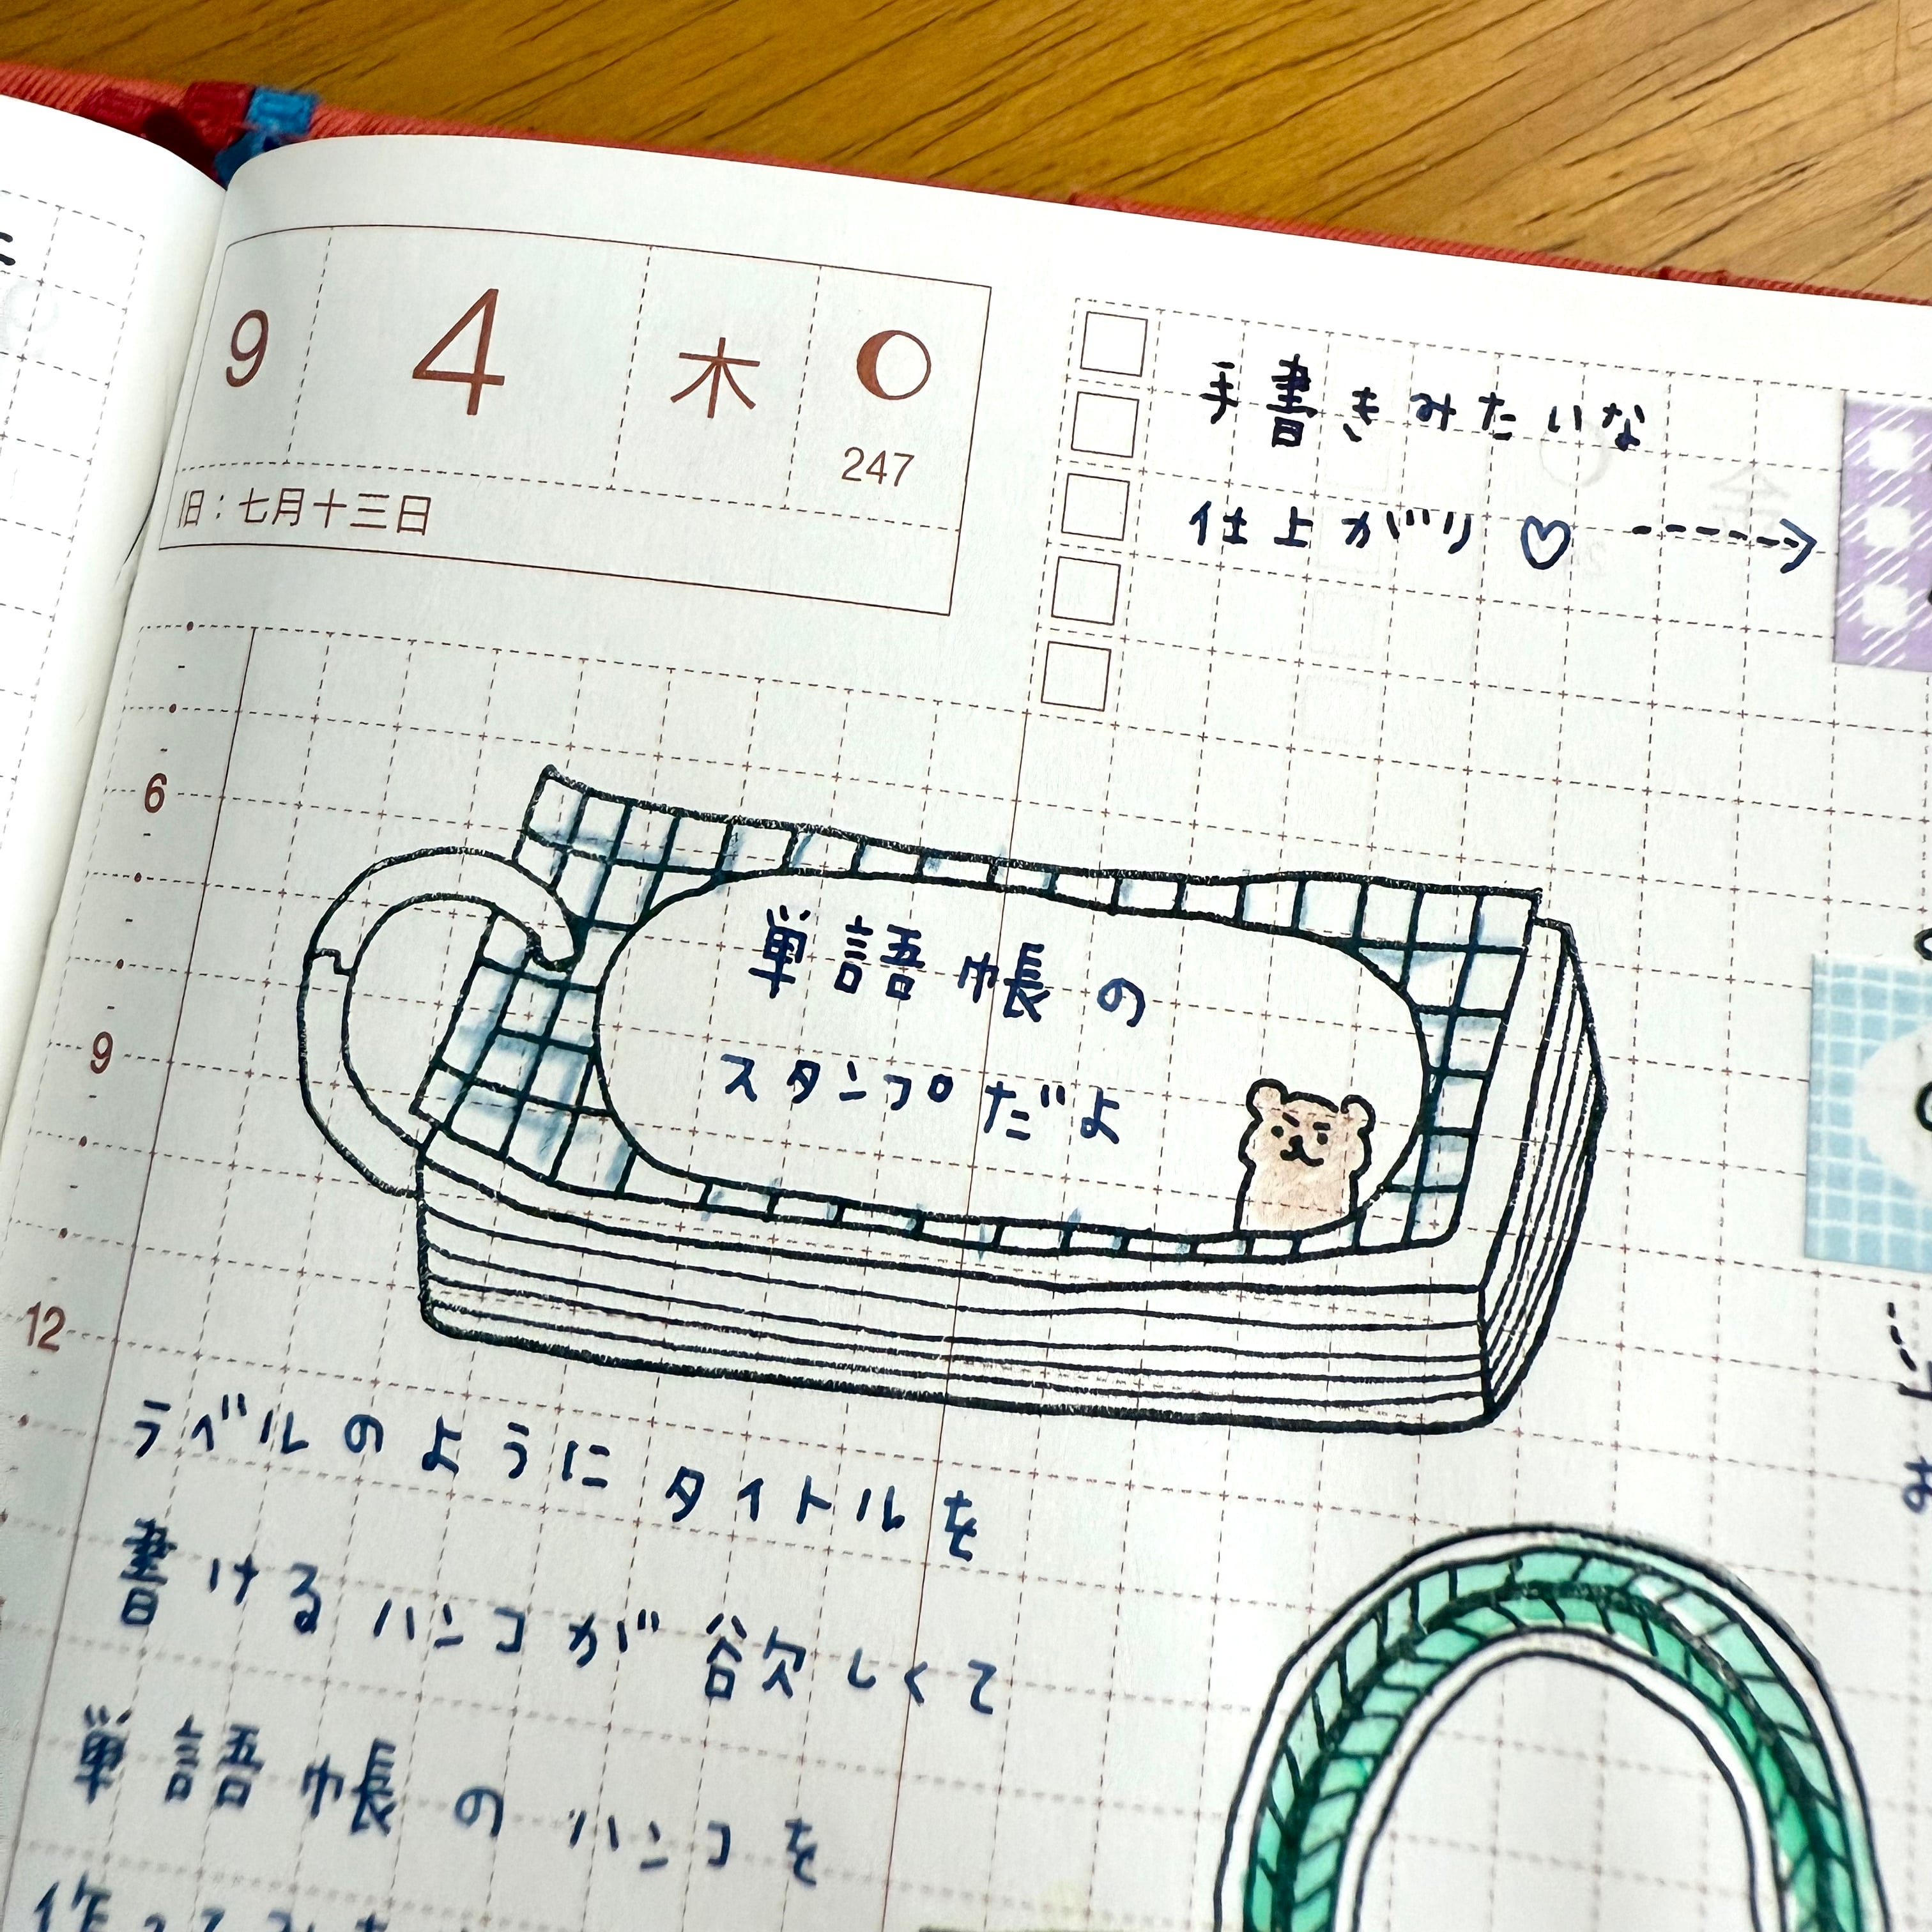 9 4 木
247
旧：七月十三日
手書きみたいな
仕上がり♡---->
6
9
12
単語帳の
スタンプだよ
ラベルのようにタイトルを
書けるハンコが欲しくて
単語帳のハンコを